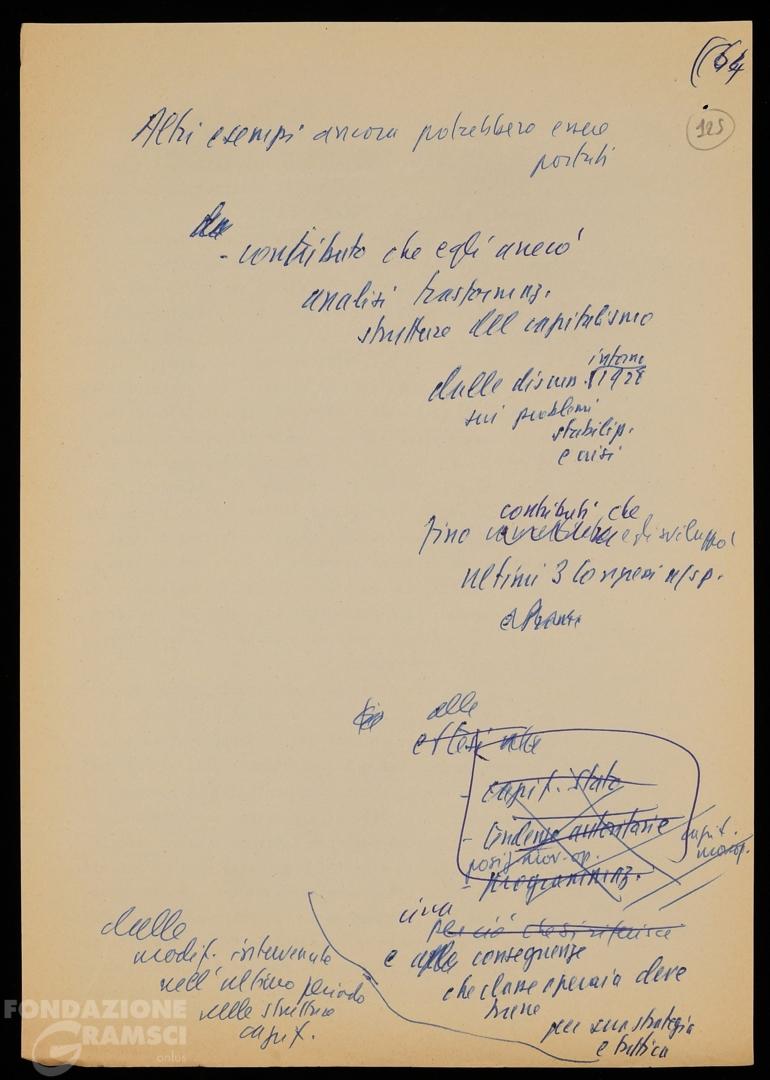 64
125
Altri esempi ancora potrebbero essere
portati
- contributo che egli arrecò
analisi trasformaz.
strutture del capitalismo
dalle discuss. intorno 1928
sui problemi
stabiliz.
e crisi
contributi che
fino egli sviluppò
ultimi 3 Congressi
alle
- capit. stato
- tendenze autoritarie
capit.
monop.
posiz. mov. op.
- programmaz.
circa
per ciò che si riferisce
e conseguenze
che classe operaia deve
trarne
per sua strategia
e tattica
dalle
modif. intervenute
nell'ultimo periodo
nelle strutture
capit.
FONDAZIONE
GRAMSCI
onlus